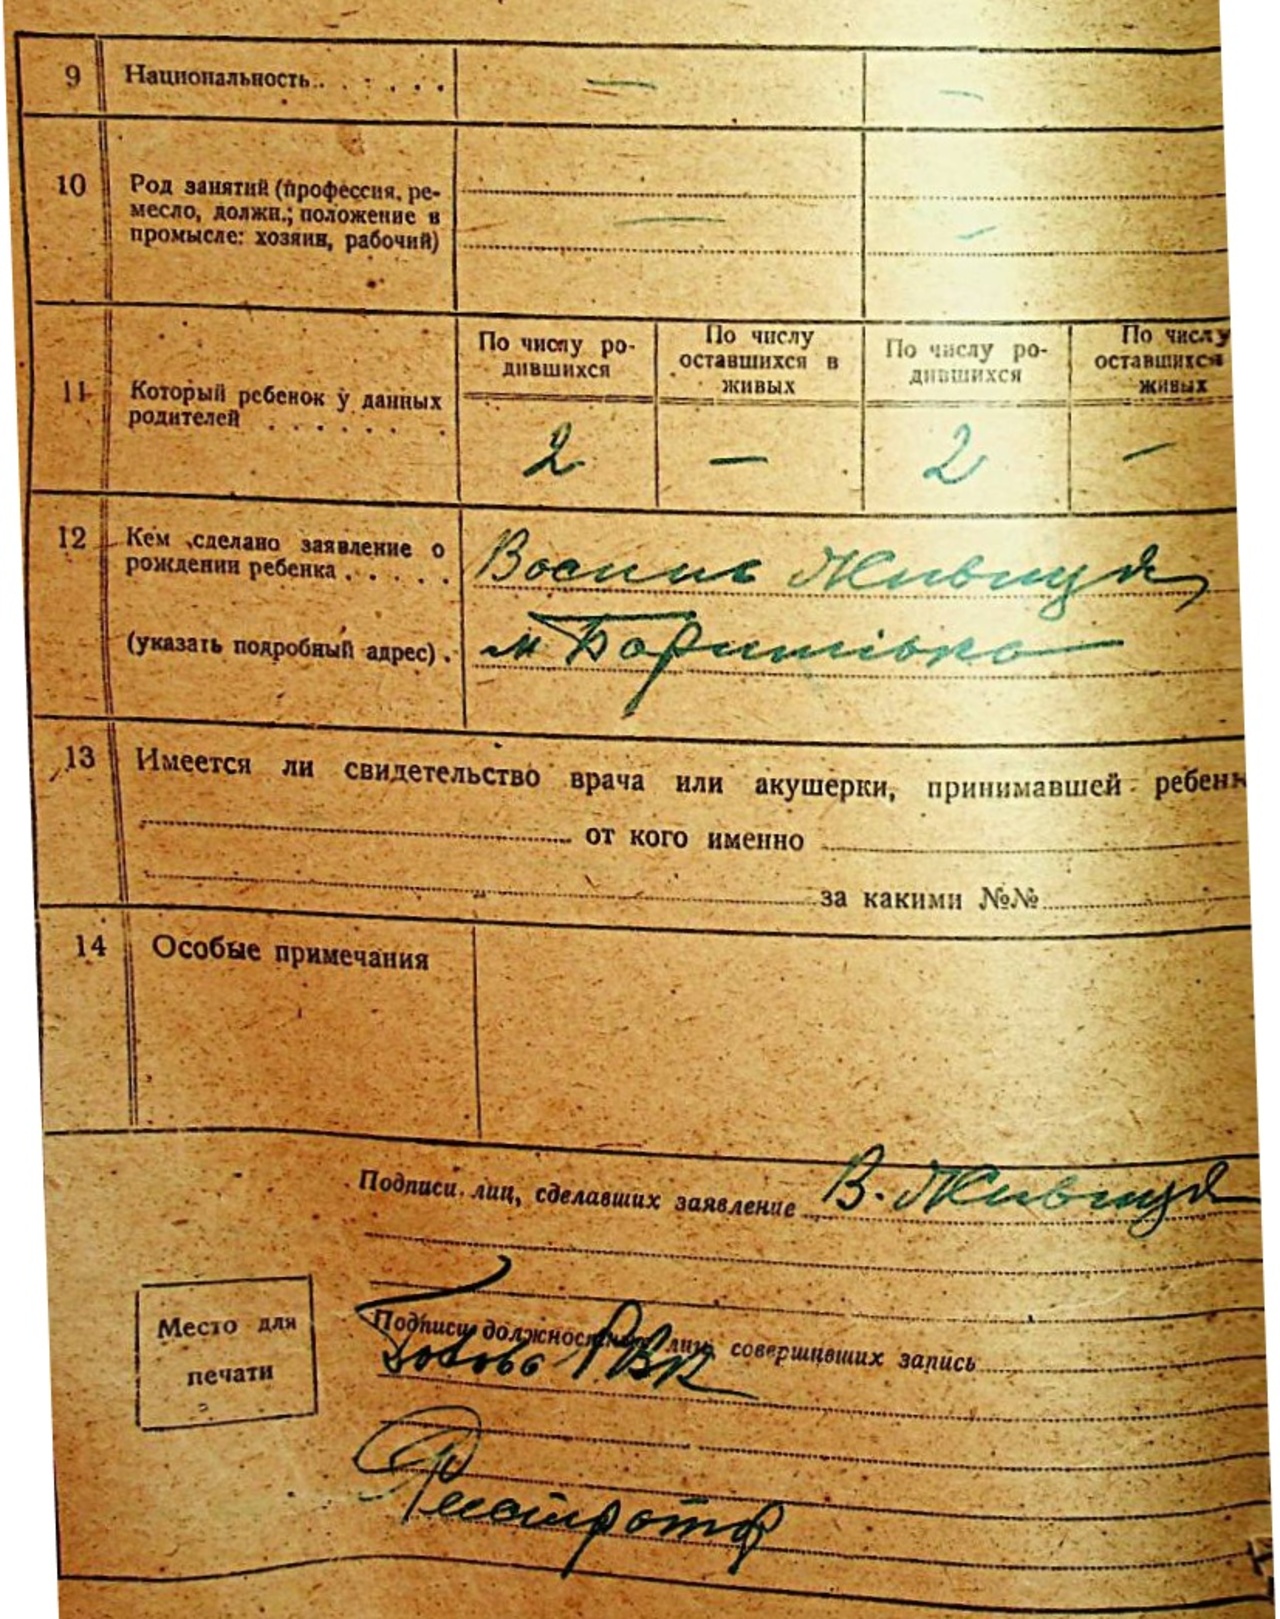 9 Национальность . . . . . . — —
10 Род занятий (профессия, ре-
месло, должн.; положение в
промысле: хозяин, рабочий) — —
По числу ро-
дившихся
По числу
оставшихся в
живых
По числу ро-
дившихся
По числу
оставшихся
живых
11 Который ребенок у данных
родителей . . . . . . .
2 — 2 —
12 Кем сделано заявление о
рождении ребенка . . . . .
м Баришівка
(указать подробный адрес) .
13 Имеется ли свидетельство врача или акушерки, принимавшей ребенк
от кого именно
за какими №№
14 Особые примечания
Подписи лиц, сделавших заявление В.
Место для
печати
Подписи должностных лиц, совершивших запись
Голова РВК